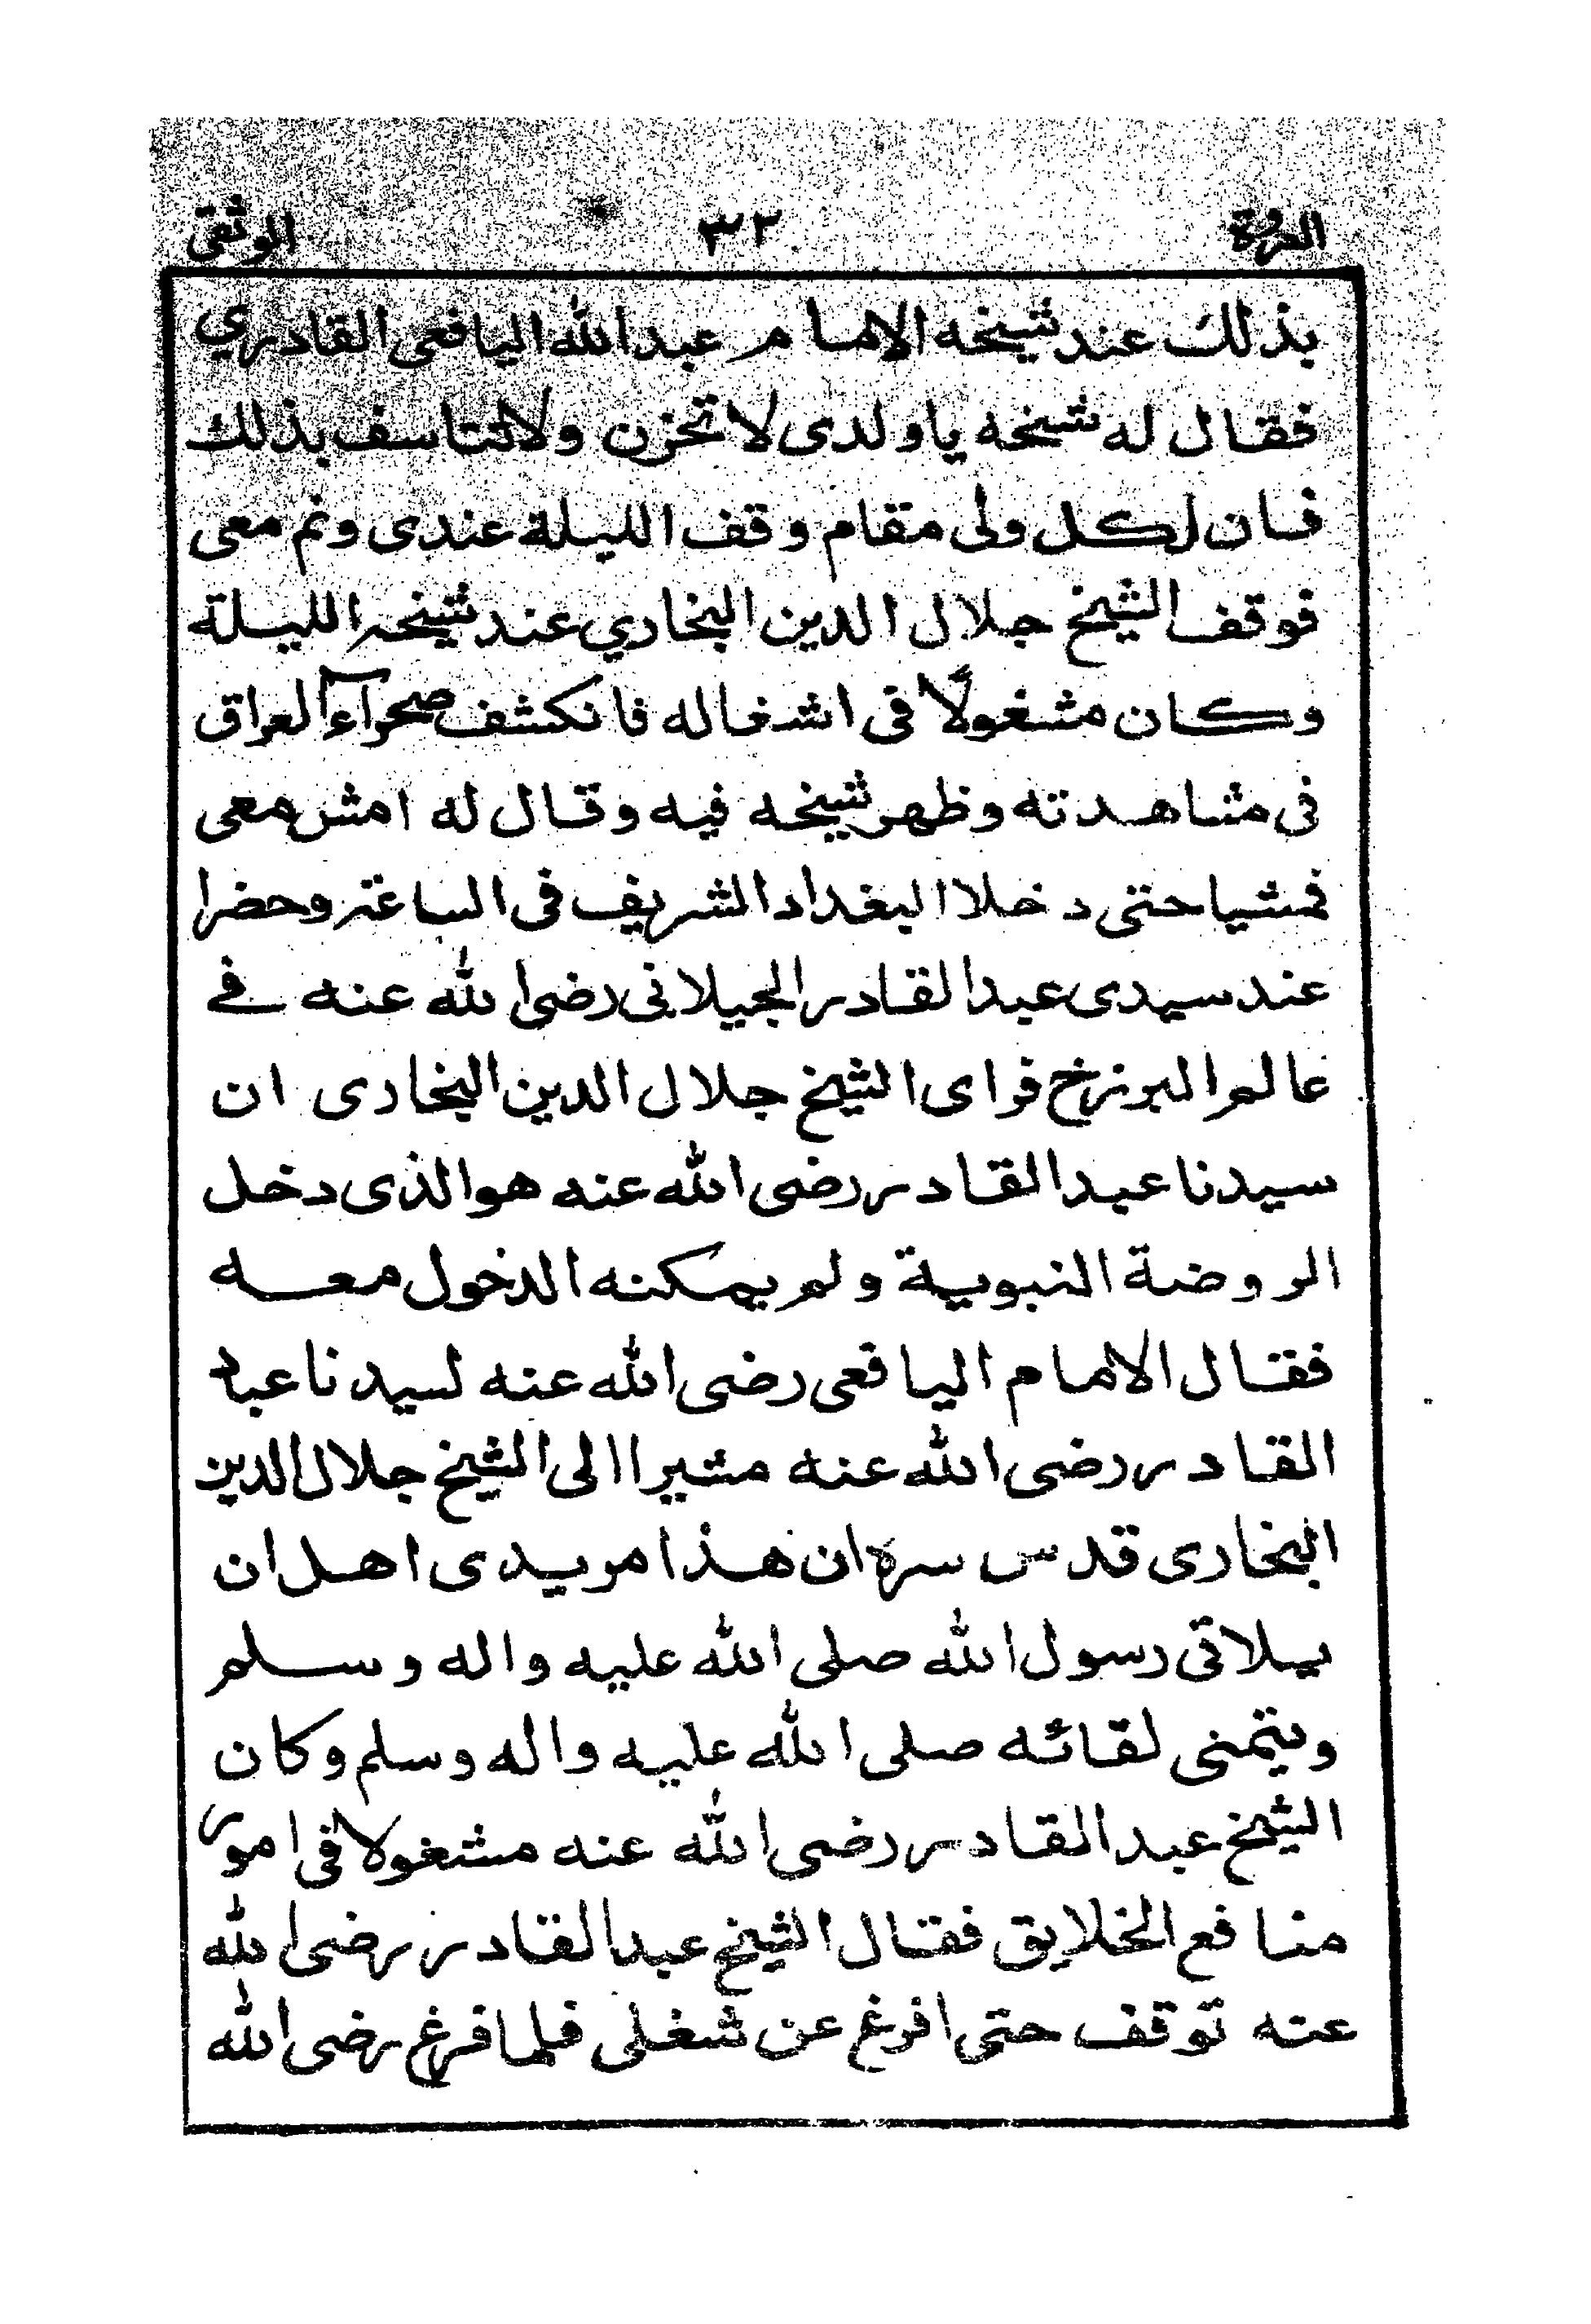 العروة ٣٢ الوثقى
بذلك عند شيخه الامام عبدالله اليافعى القادري
فقال له شيخه ياولدى لا تحزن ولا تتاسف بذلك
فان لكل ولى مقام وقف الليلة عندى ونم معى
فوقف الشيخ جلال الدين البخاري عند شيخه الليلة
وكان مشغولًا فى اشغاله فانكشف صحرآء العراق
فى مشاهدته وظهر شيخه فيه وقال له امش معى
فمشيا حتى دخلا البغداد الشريف فى الساعة وحضرا
عند سيدى عبدالقادر الجيلانى رضى الله عنه فے
عالم البرزخ فراى الشيخ جلال الدين البخارى ان
سيدنا عبدالقادر رضى الله عنه هوالذى دخل
الروضة النبوية ولم يمكنه الدخول معه
فقال الامام اليافعى رضى الله عنه لسيدنا عبد
القادر رضى الله عنه مشيرا الى الشيخ جلال الدين
البخارى قدس سره ان هذا مريدى اهل ان
يلاقى رسول الله صلى الله عليه واله وسلم
ويتمنى لقائه صلى الله عليه واله وسلم وكان
الشيخ عبدالقادر رضى الله عنه مشغولا فى امور
منافع الخلايق فقال الشيخ عبدالقادر رضى الله
عنه توقف حتى افرغ عن شغلى فلما فرغ رضى الله